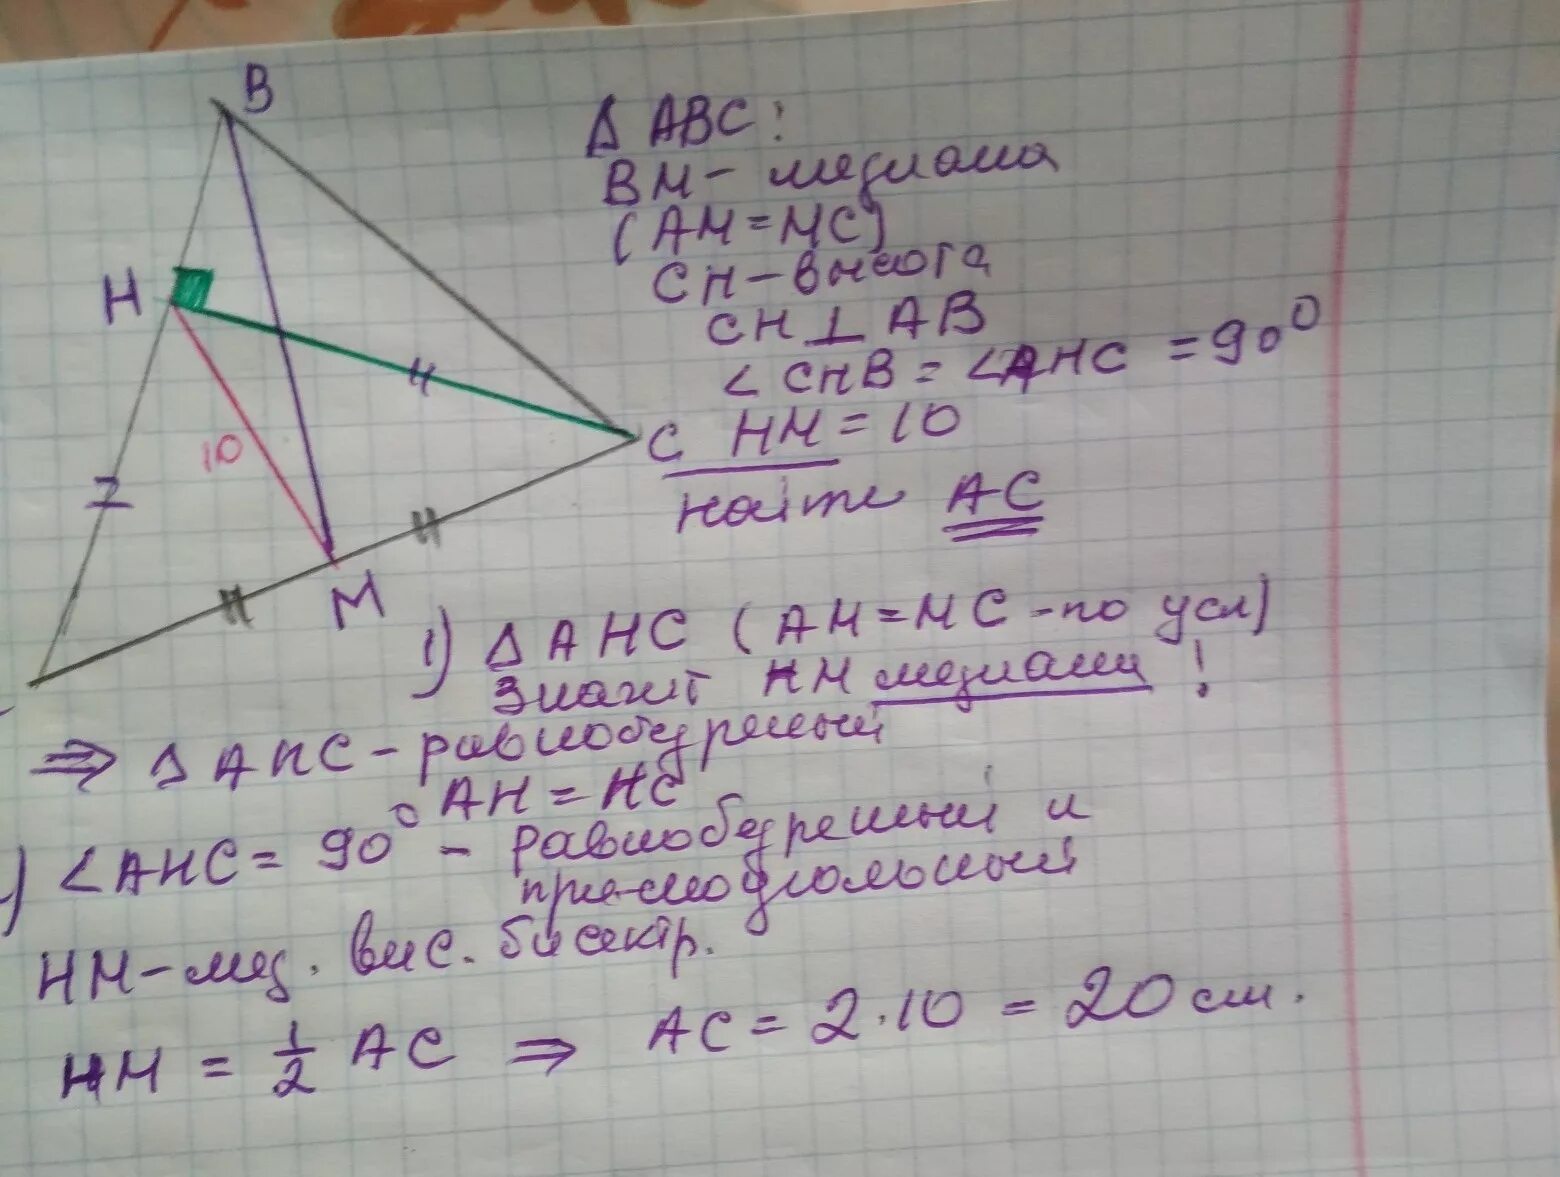 B
H
10
C
M
Δ ABC:
BM - медиана
(AM = MC)
CH - высота
CH ⊥ AB
∠ CHB = ∠AHC = 90°
HM = 10
найти AC
1) Δ AHC (AM = MC - по усл)
Значит HM медиана !
⇒ Δ AHC - равнобедренный
AH = HC
) ∠AHC = 90° - равнобедренный и
прямоугольный
HM - мед. выс. бисектр.
HM = 1/2 AC ⇒ AC = 2·10 = 20 см.